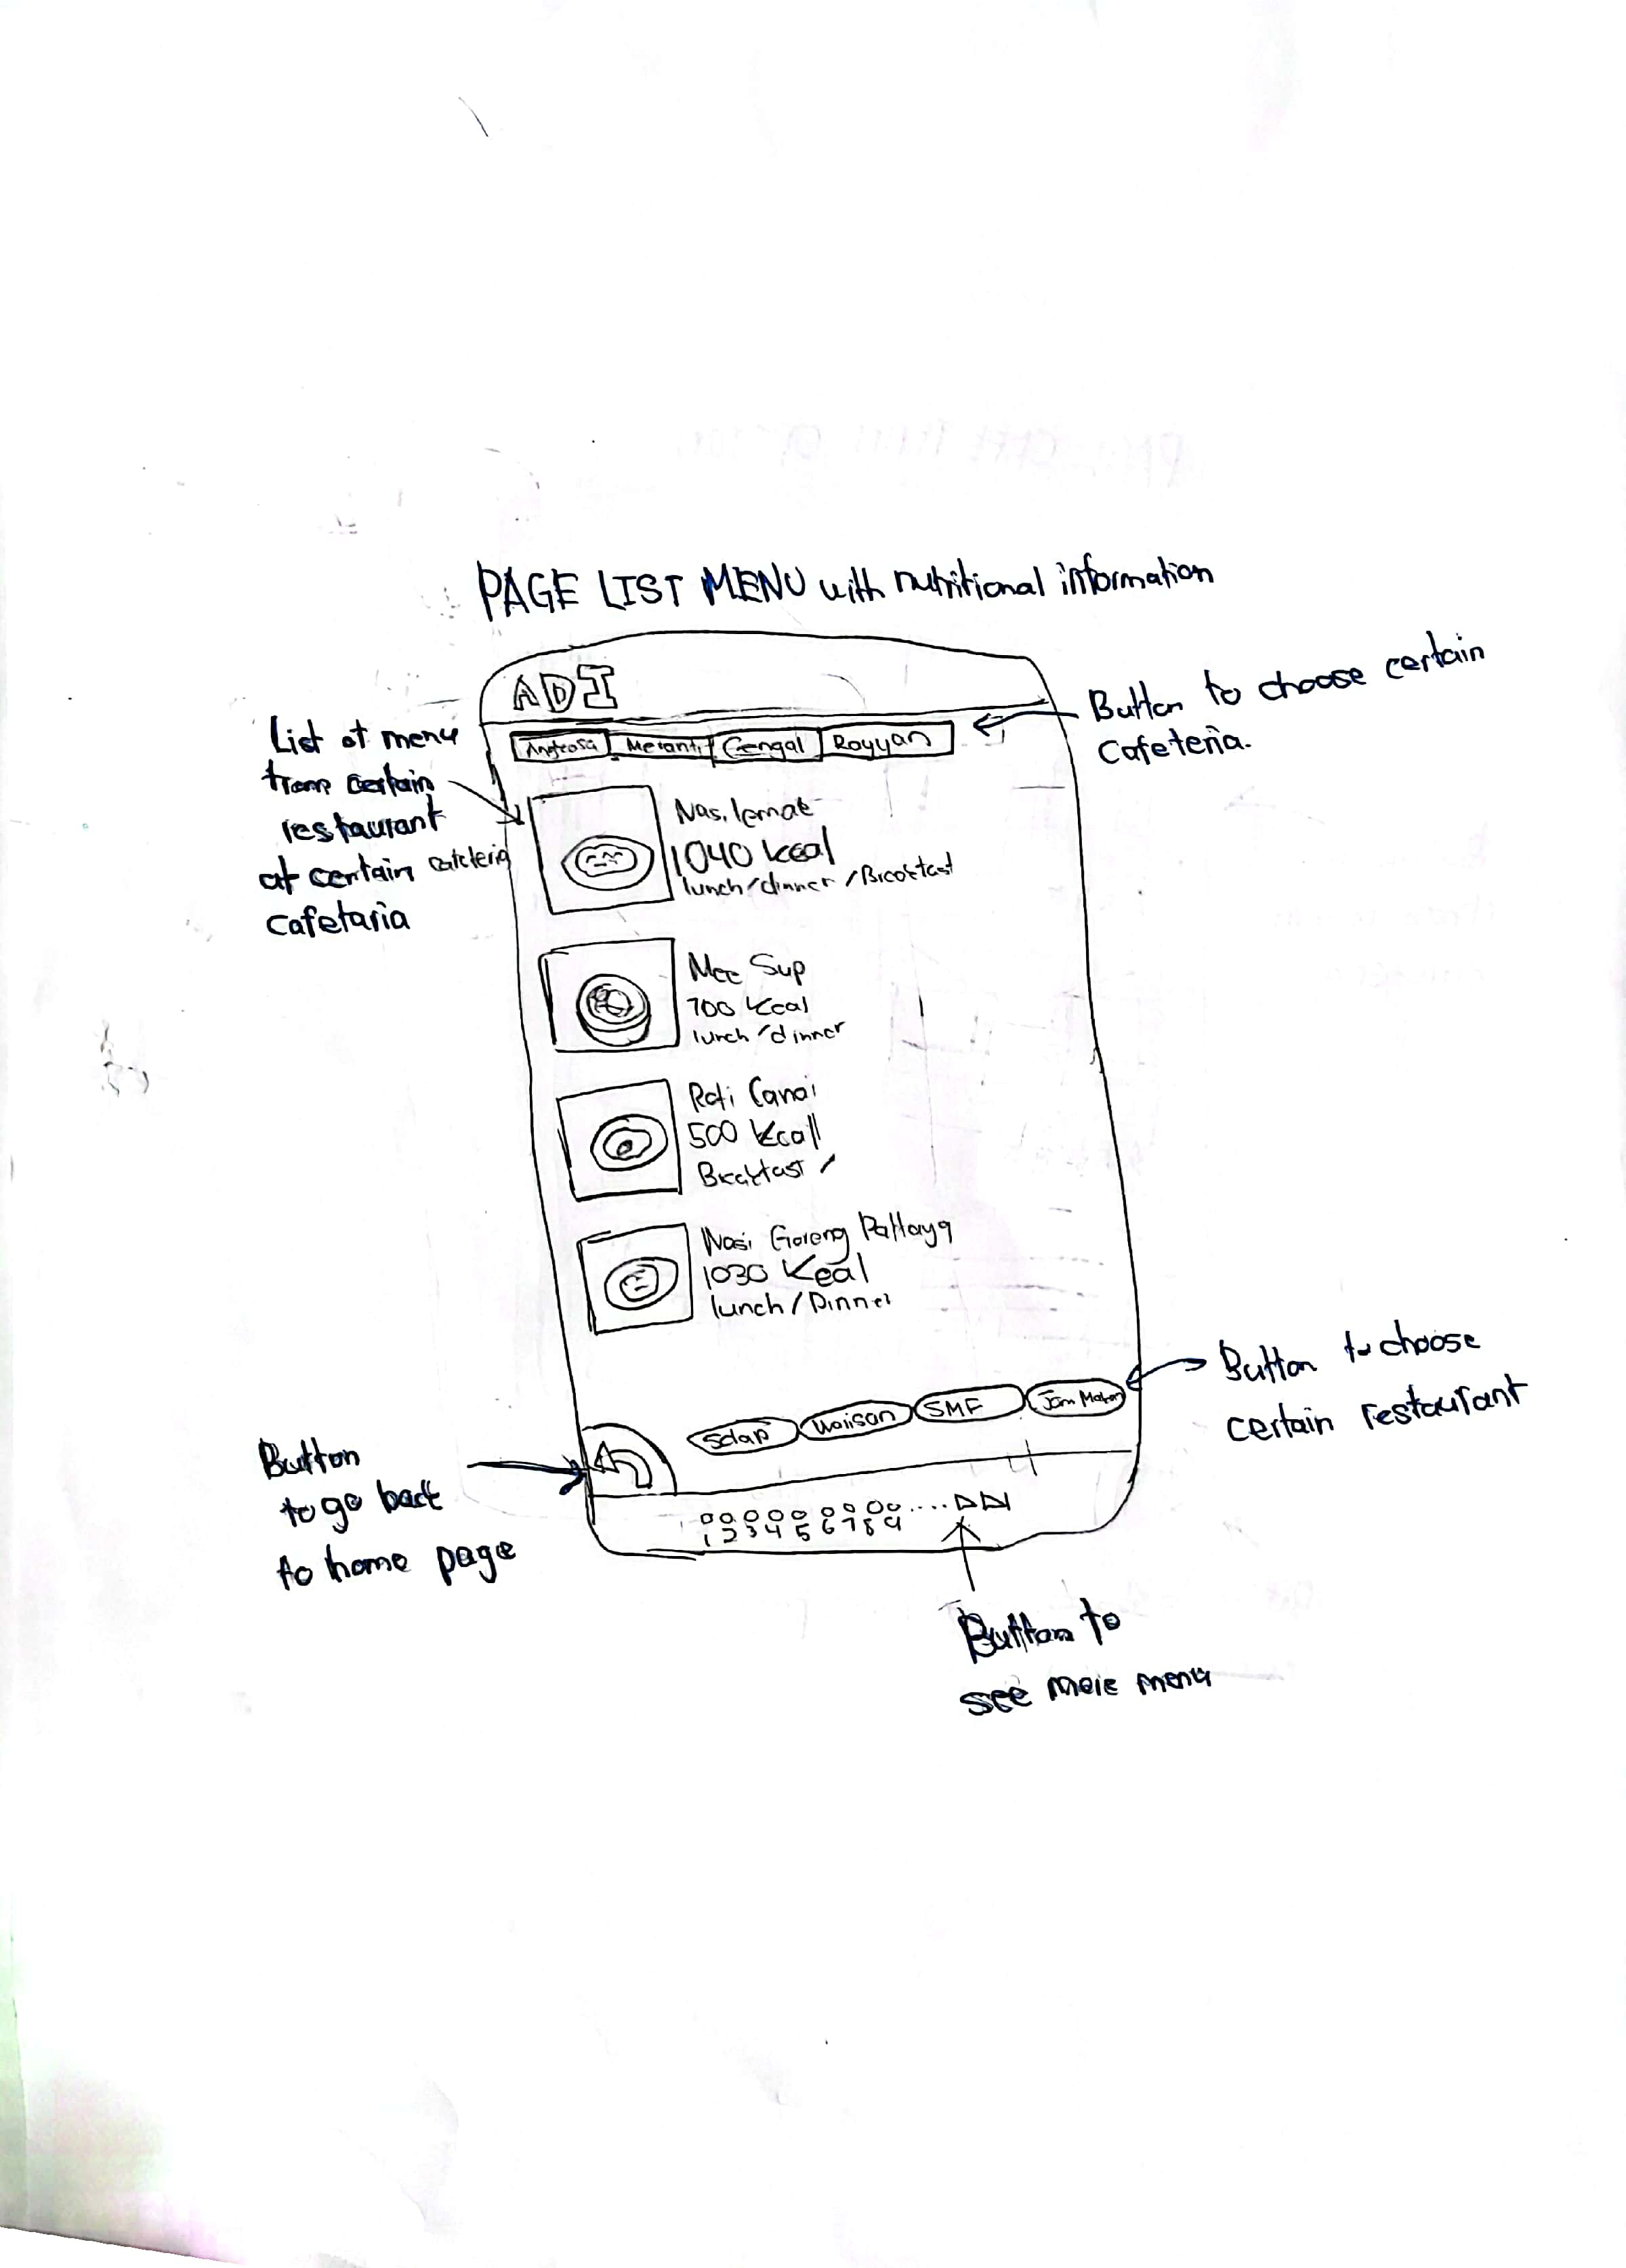 PAGE LIST MENU with nutritional information
ADI
Angkasa Meranti Cengal Rayyan
Button to choose certain
cafeteria.
List of menu
from certain
restaurant
at certain cafeteria
cafetaria
Nasi lemak
1040 kcal
lunch/dinner/Breakfast
Mee Sup
700 Kcal
lunch/dinner
Roti Canai
500 Kcall
Breakfast /
Nasi Goreng Pattaya
1030 Kcal
lunch/Dinner
Sdap Waiisan SMF Jom Makan
Button to choose
certain restaurant
Button
to go back
to home page
1 2 3 4 5 6 7 8 9
Button to
see more menu